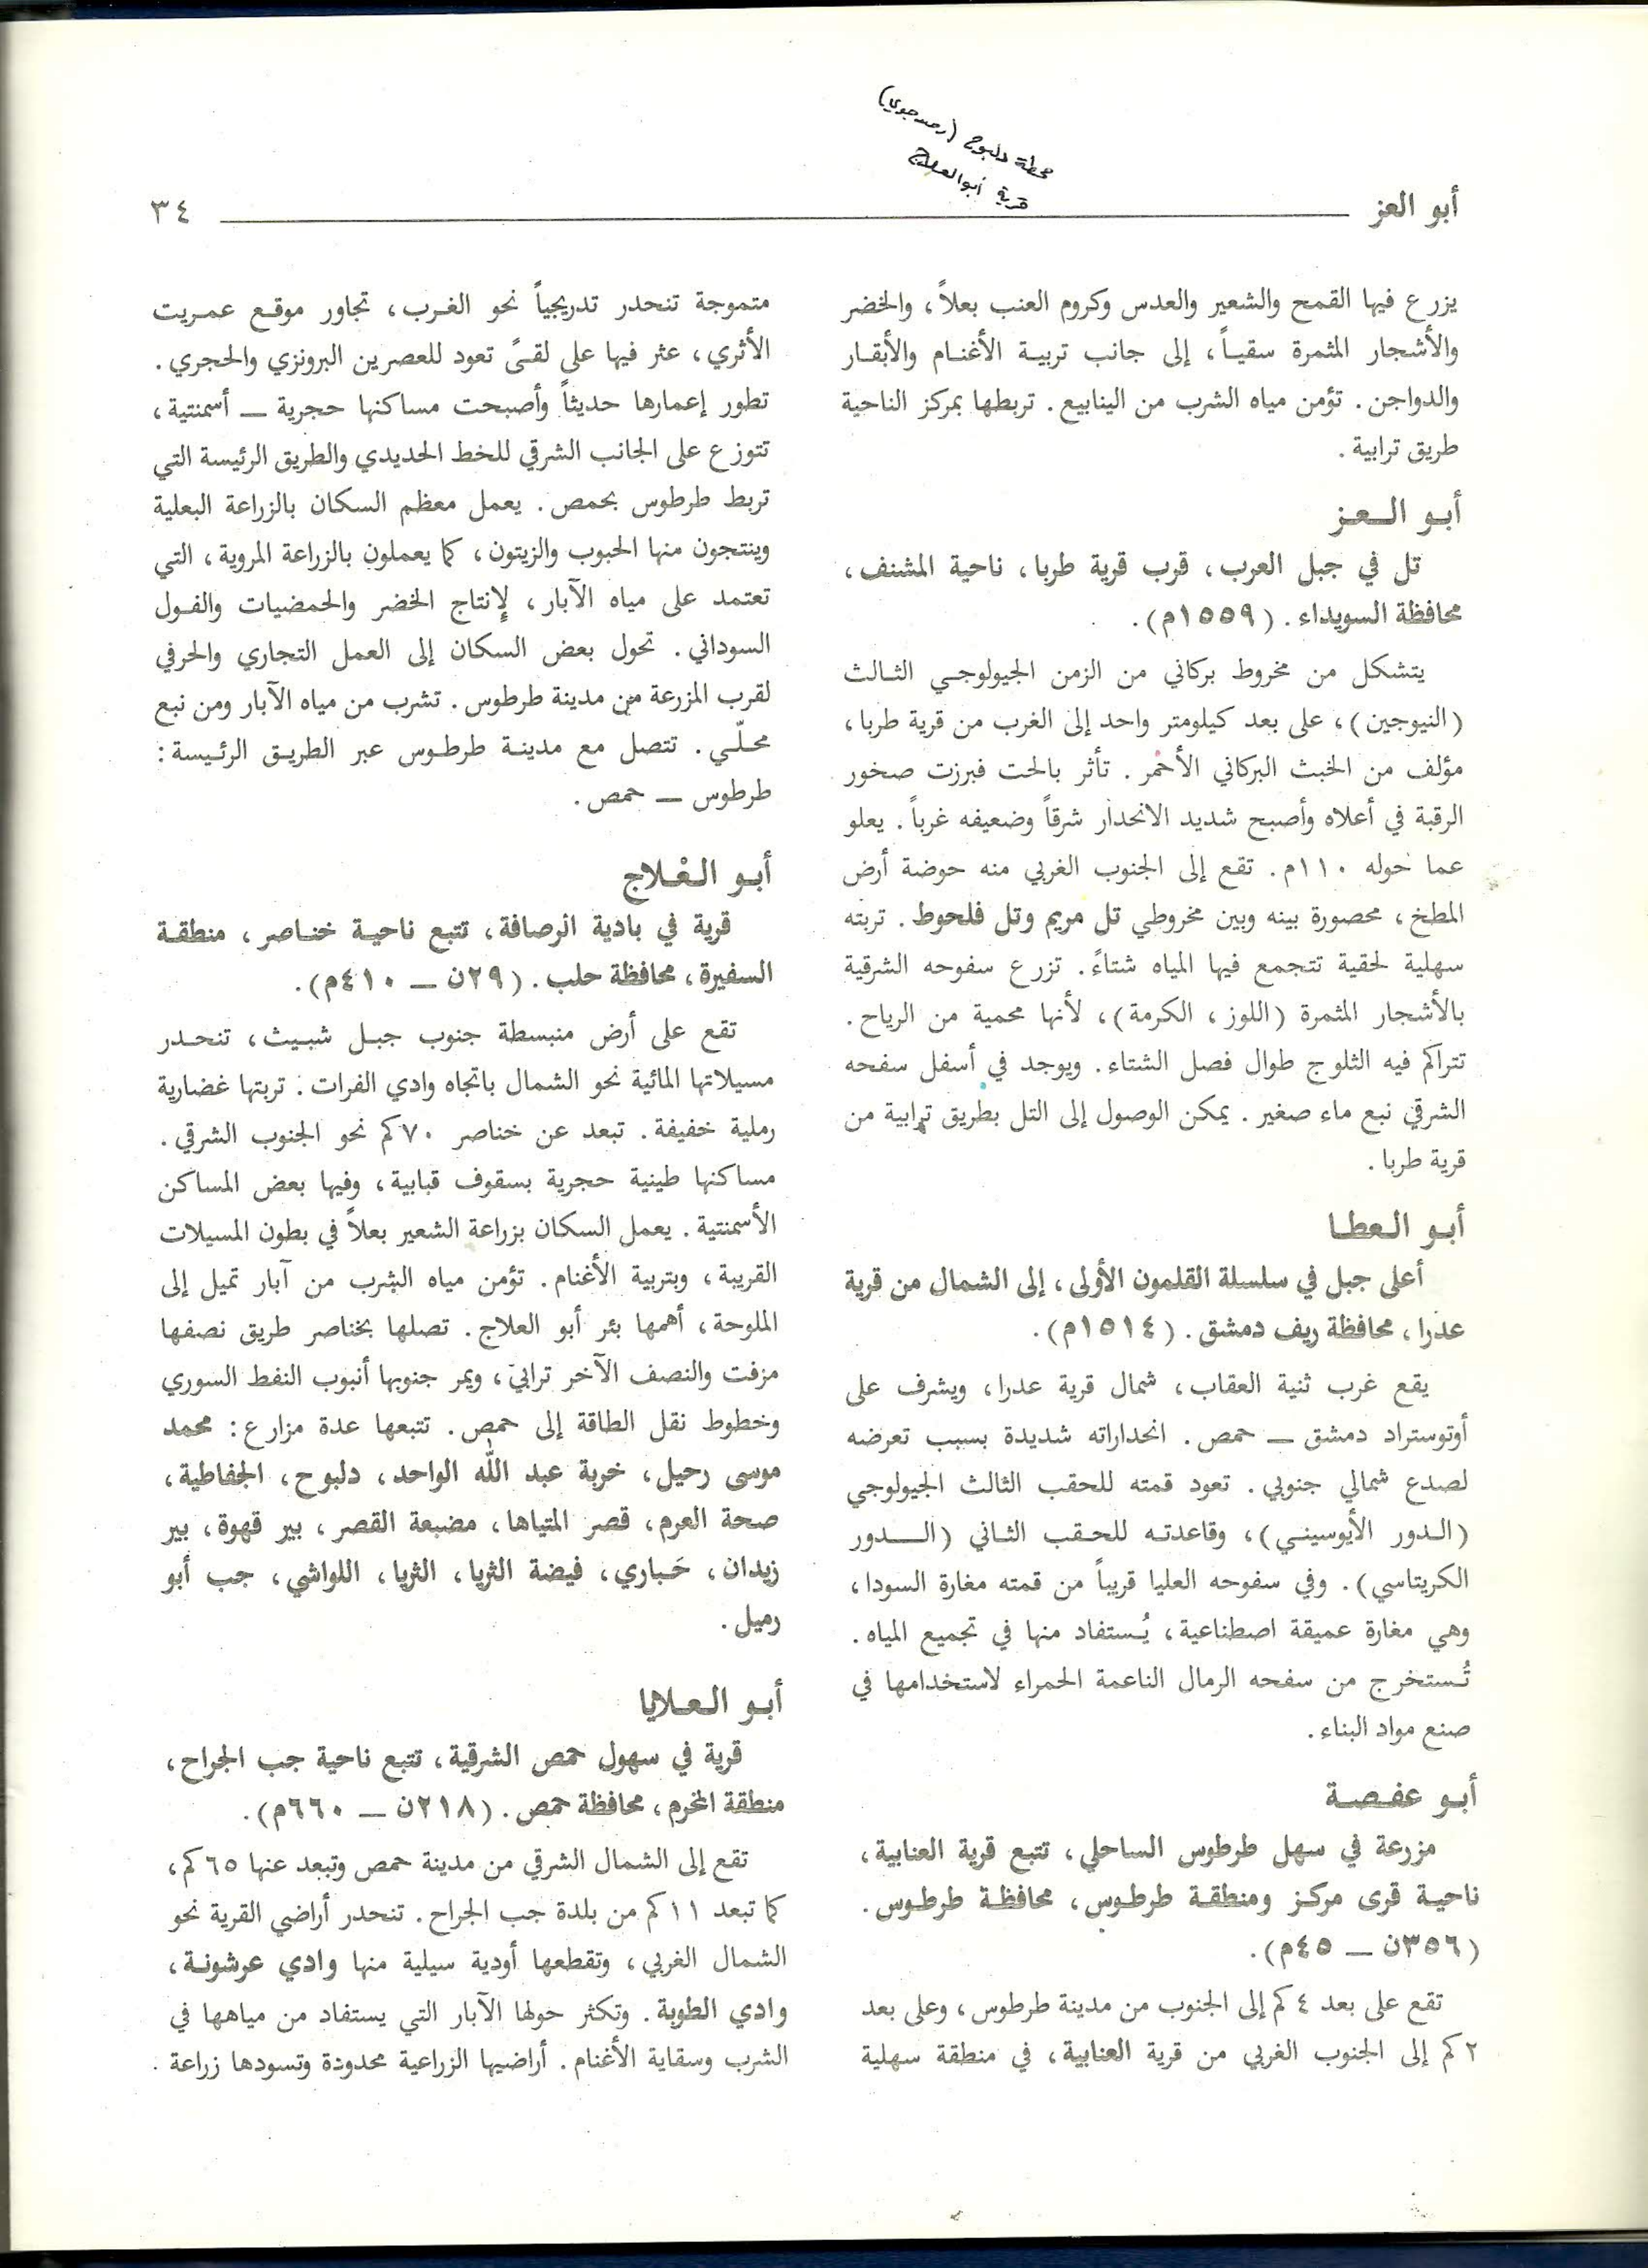 محطة دلبوح (رصد جوي)
قرية أبو العلاج
أبو العز
٣٤
يزرع فيها القمح والشعير والعدس وكروم العنب بعلاً، والخضر
والأشجار المثمرة سقياً، إلى جانب تربية الأغنام والأبقار
والدواجن. تؤمن مياه الشرب من الينابيع. تربطها بمركز الناحية
طريق ترابية.
أبو العز
تل في جبل العرب، قرب قرية طربا، ناحية المشنف،
محافظة السويداء. (١٥٥٩م).
يتشكل من مخروط بركاني من الزمن الجيولوجي الثالث
(النيوجين)، على بعد كيلومتر واحد إلى الغرب من قرية طربا،
مؤلف من الخبث البركاني الأحمر. تأثر بالحت فبرزت صخور
الرقبة في أعلاه وأصبح شديد الانحدار شرقاً وضعيفه غرباً. يعلو
عما حوله ١١٠م. تقع إلى الجنوب الغربي منه حوضة أرض
المطخ، محصورة بينه وبين مخروطي تل مريم وتل فلحوط. تربته
سهلية لحقية تتجمع فيها المياه شتاءً. تزرع سفوحه الشرقية
بالأشجار المثمرة (اللوز، الكرمة)، لأنها محمية من الرياح.
تتراكم فيه الثلوج طوال فصل الشتاء. ويوجد في أسفل سفحه
الشرقي نبع ماء صغير. يمكن الوصول إلى التل بطريق ترابية من
قرية طربا.
أبو العطا
أعلى جبل في سلسلة القلمون الأولى، إلى الشمال من قرية
عدرا، محافظة ريف دمشق. (١٥١٤م).
يقع غرب ثنية العقاب، شمال قرية عدرا، ويشرف على
أوتوستراد دمشق ــ حمص. انحداراته شديدة بسبب تعرضه
لصدع شمالي جنوبي. تعود قمته للحقب الثالث الجيولوجي
(الدور الأيوسيني)، وقاعدته للحقب الثاني (الدور
الكريتاسي). وفي سفوحه العليا قريباً من قمته مغارة السودا،
وهي مغارة عميقة اصطناعية، يُستفاد منها في تجميع المياه.
تُستخرج من سفحه الرمال الناعمة الحمراء لاستخدامها في
صنع مواد البناء.
أبو عفصة
مزرعة في سهل طرطوس الساحلي، تتبع قرية العنابية،
ناحية قرى مركز ومنطقة طرطوس، محافظة طرطوس.
(٣٥٦ن ــ ٤٥م).
تقع على بعد ٤ كم إلى الجنوب من مدينة طرطوس، وعلى بعد
٢ كم إلى الجنوب الغربي من قرية العنابية، في منطقة سهلية
متموجة تنحدر تدريجياً نحو الغرب، تجاور موقع عمريت
الأثري، عثر فيها على لقىً تعود للعصرين البرونزي والحجري.
تطور إعمارها حديثاً وأصبحت مساكنها حجرية ــ أسمنتية،
تتوزع على الجانب الشرقي للخط الحديدي والطريق الرئيسة التي
تربط طرطوس بحمص. يعمل معظم السكان بالزراعة البعلية
وينتجون منها الحبوب والزيتون، كما يعملون بالزراعة المروية، التي
تعتمد على مياه الآبار، لإنتاج الخضر والحمضيات والفول
السوداني. تحول بعض السكان إلى العمل التجاري والحرفي
لقرب المزرعة من مدينة طرطوس. تشرب من مياه الآبار ومن نبع
محلّي. تتصل مع مدينة طرطوس عبر الطريق الرئيسة:
طرطوس ــ حمص.
أبو العْلاج
قرية في بادية الرصافة، تتبع ناحية خناصر، منطقة
السفيرة، محافظة حلب. (٢٩ن ــ ٤١٠م).
تقع على أرض منبسطة جنوب جبل شبيث، تنحدر
مسيلاتها المائية نحو الشمال باتجاه وادي الفرات. تربتها غضارية
رملية خفيفة. تبعد عن خناصر ٧٠كم نحو الجنوب الشرقي.
مساكنها طينية حجرية بسقوف قبابية، وفيها بعض المساكن
الأسمنتية. يعمل السكان بزراعة الشعير بعلاً في بطون المسيلات
القريبة، وبتربية الأغنام. تؤمن مياه الشرب من آبار تميل إلى
الملوحة، أهمها بئر أبو العلاج. تصلها بخناصر طريق نصفها
مزفت والنصف الآخر ترابي، ويمر جنوبها أنبوب النفط السوري
وخطوط نقل الطاقة إلى حمص. تتبعها عدة مزارع: محمد
موسى رحيل، خربة عبد الله الواحد، دلبوح، الجفاطية،
صحة العرم، قصر المتياها، مضبعة القصر، بير قهوة، بير
زيدان، حَباري، فيضة الثريا، الثريا، اللواشي، جب أبو
رميل.
أبو العلايا
قرية في سهول حمص الشرقية، تتبع ناحية جب الجراح،
منطقة المخرم، محافظة حمص. (٢١٨ن ــ ٦٦٠م).
تقع إلى الشمال الشرقي من مدينة حمص وتبعد عنها ٦٥ كم،
كما تبعد ١١ كم من بلدة جب الجراح. تنحدر أراضي القرية نحو
الشمال الغربي، وتقطعها أودية سيلية منها وادي عرشونة،
وادي الطوبة. وتكثر حولها الآبار التي يستفاد من مياهها في
الشرب وسقاية الأغنام. أراضيها الزراعية محدودة وتسودها زراعة